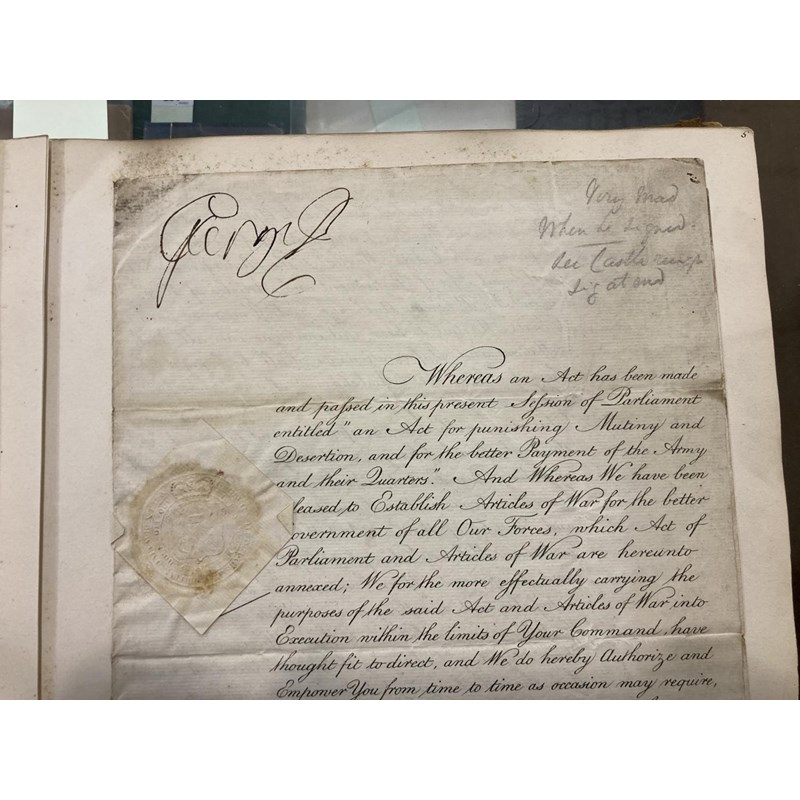 George R
Very mad
When he signed.
See Castlereagh
Sig at end
5
Whereas an Act has been made
and passed in this present Session of Parliament
entitled "an Act for punishing Mutiny and
Desertion, and for the better Payment of the Army
and their Quarters." And Whereas We have been
leased to Establish Articles of War for the better
overnment of all Our Forces, which Act of
Parliament and Articles of War are hereunto
annexed; We for the more effectually carrying the
purposes of the said Act and Articles of War into
Execution within the limits of Your Command, have
thought fit to direct, and We do hereby Authorize and
Empower You from time to time as occasion may require,